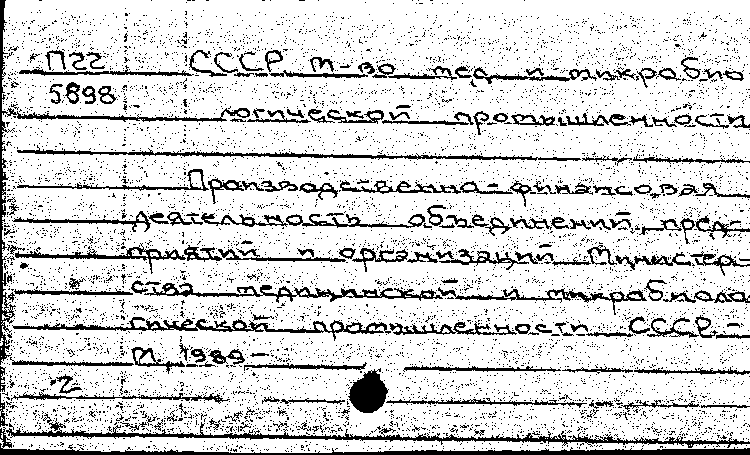 П22 СССР. М-во мед. и микробио
5898
логической промышленности
Производственно-финансовая
деятельность объединений, пред-
приятий и организаций Министер-
ства медицинской и микробиоло
гической промышленности СССР.-
М., 1989-
2